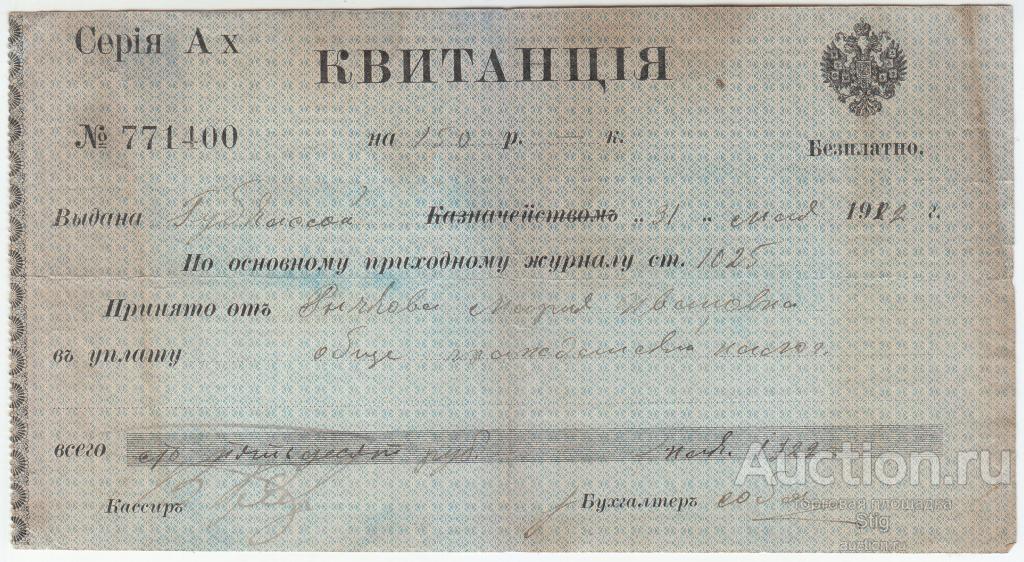 Серія А х
КВИТАНЦІЯ
№ 771400
на 150 р. — к.
Безплатно.
Выдана Губкассой Казначействомъ „31„ мая 1922 г.
По основному приходному журналу ст. 1025
Принято отъ Бычкова Мария Ивановна
въ уплату обще гражданский налог.
всего сто пятьдесят руб. 1922
Кассиръ
Бухгалтеръ
Auction.ru
торговая площадка
Stig
auction.ru